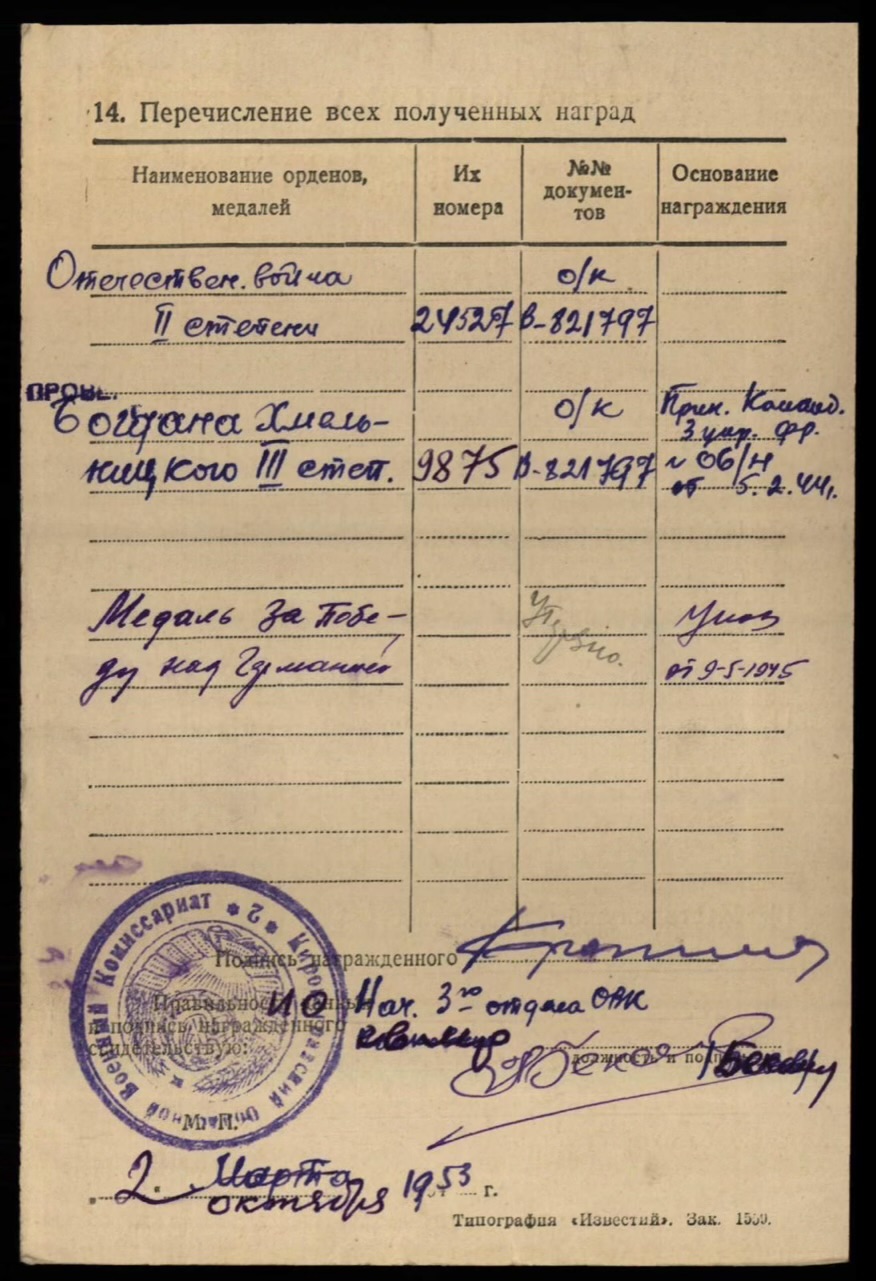 14. Перечисление всех полученных наград
Наименование орденов, медалей
Их номера
№№ докумен-тов
Основание награждения
Отечествен. война о/к
II степени 245287 В-821797
ПРОВЕ.
Богдана Хмель- о/к Прик. Команд.
3 укр. фр.
ницкого III степ. 9875 В-821797 № 06/н
от 5.2.44г.
Медаль За Побе- Указ
ду над Германией от 9-5-1945
Подпись награжденного
Правильность
и подпись награжденного
свидетельствую:
ИО Нач. 3го отдела ОВК
должность и подпись
Военный Комиссариат * 2 *
М. П.
2. Марта
октября 1953 г.
Типография «Известий». Зак. 1559.